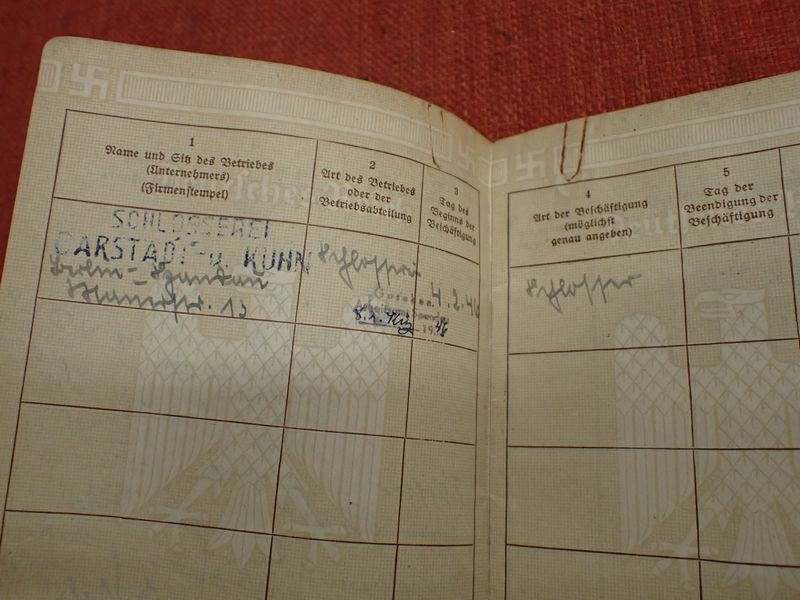 1
Name und Sitz des Betriebes
(Unternehmers)
(Firmenstempel)
2
Art des Betriebes
oder der
Betriebsabteilung
3
Tag des
Beginns der
Beschäftigung
SCHLOSSEREI
DARSTADT u. KUHN
Berlin-Spandau
13
Schlosserei
4.2.46
Gesehen
Arbeitsamt Spandau
8.2. 1946
4
Art der Beschäftigung
(möglichst
genau angeben)
5
Tag der
Beendigung der
Beschäftigung
Schlosser